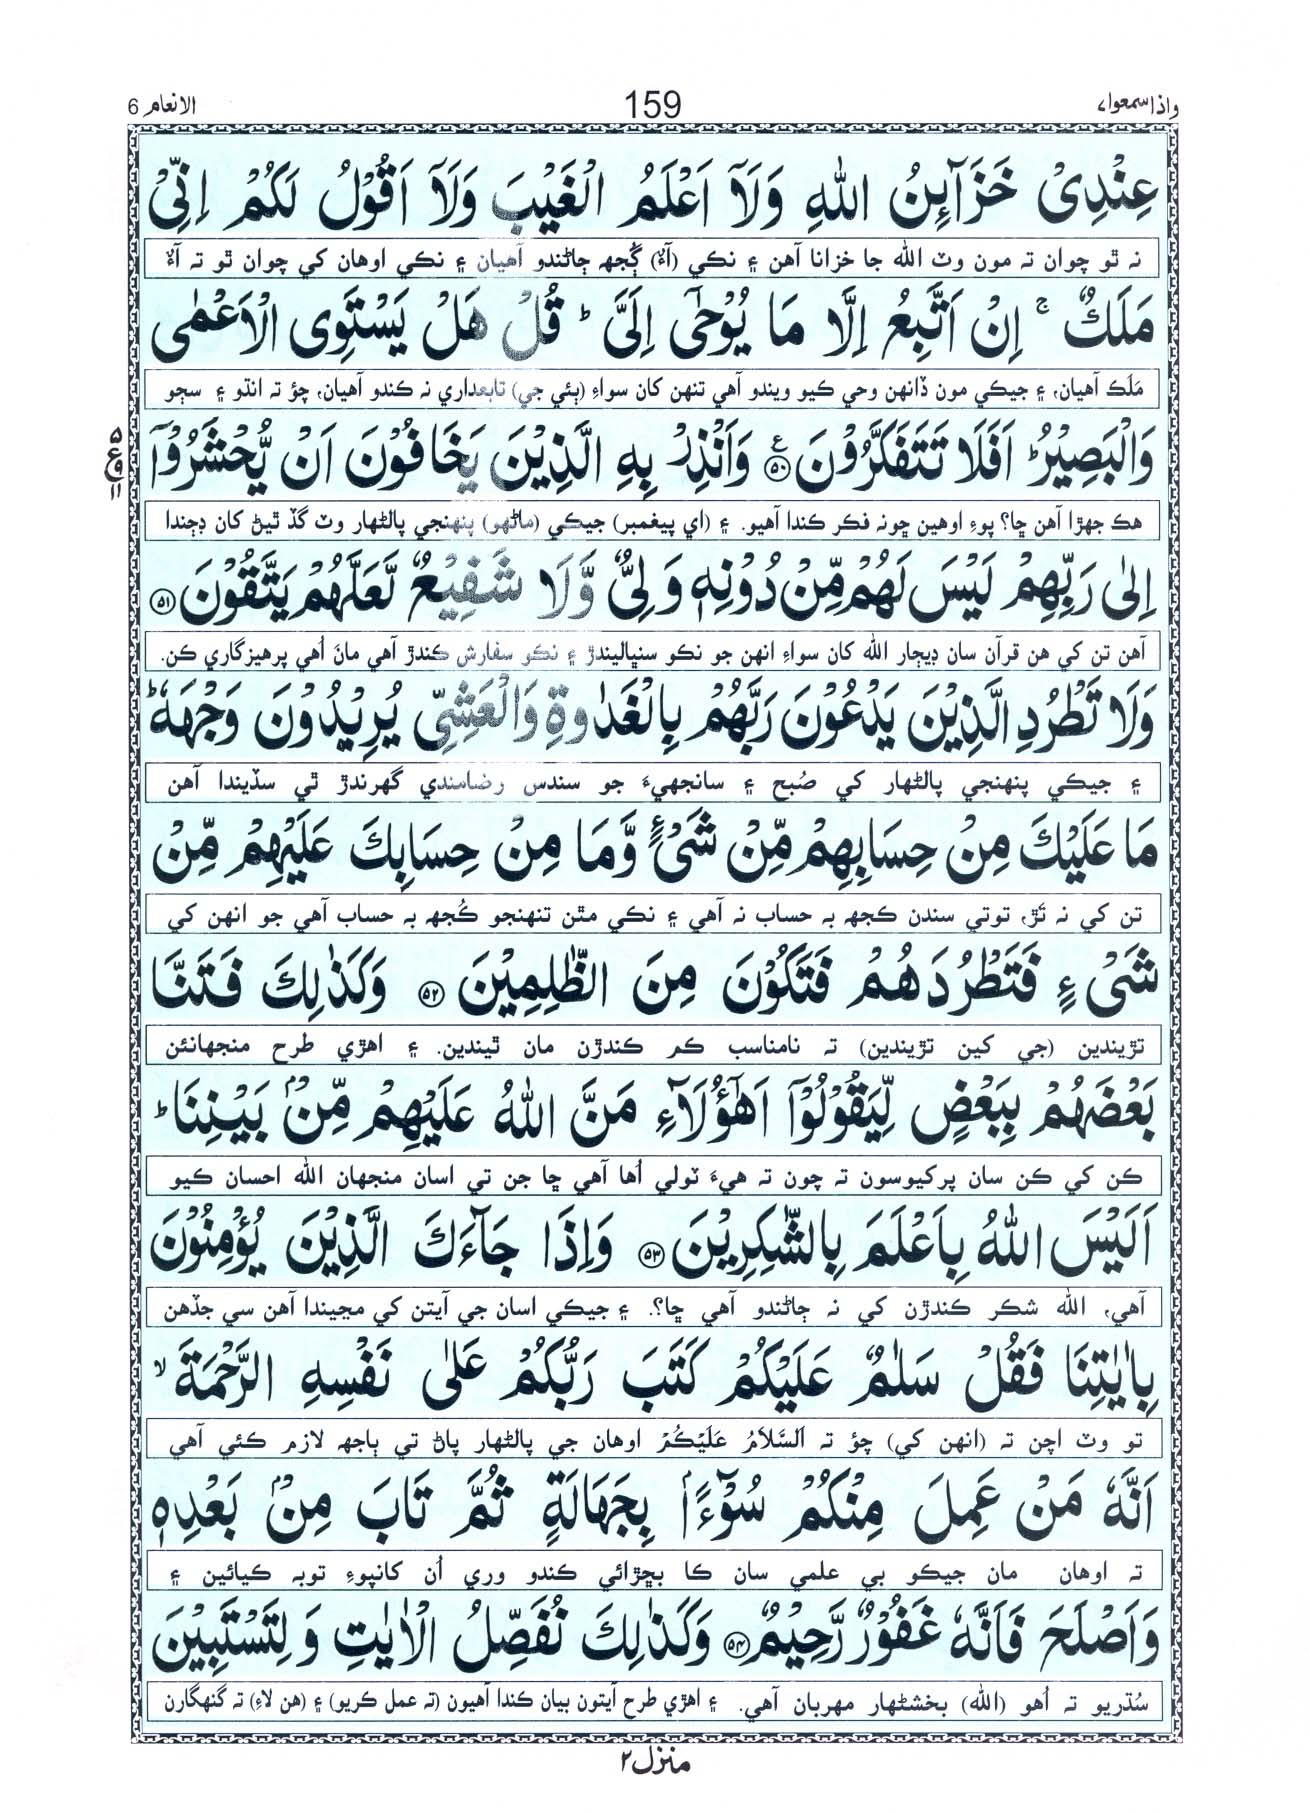 واذاسمعوا٧ 159 الانعام 6
عِنْدِىْ خَزَآئِنُ اللّٰهِ وَلَآ اَعْلَمُ الْغَيْبَ وَلَآ اَقُوْلُ لَكُمْ اِنِّىْ
نہ ٿو چوان تہ مون وٽ اللہ جا خزانا آهن ۽ نڪي (آءٌ) ڳُجهہ ڄاڻندو آهيان ۽ نڪي اوهان کي چوان ٿو تہ آءٌ
مَلَكٌ ۚ اِنْ اَتَّبِعُ اِلَّا مَا يُوْحٰٓى اِلَىَّ ؕ قُلْ هَلْ يَسْتَوِى الْاَعْمٰى
مَلَڪ آهيان، ۽ جيڪي مون ڏانهن وحي ڪيو ويندو آهي تنهن کان سواءِ (ٻئي جي) تابعداري نہ ڪندو آهيان، چؤ تہ انڌو ۽ سڄو
وَالْبَصِيْرُ ؕ اَفَلَا تَتَفَكَّرُوْنَ ۟ع ۝٥٠ وَاَنْذِرْ بِهِ الَّذِيْنَ يَخَافُوْنَ اَنْ يُّحْشَرُوْٓا
هڪ جهڙا آهن ڇا؟ پوءِ اوهين ڇونہ فڪر ڪندا آهيو. ۽ (اي پيغمبر) جيڪي (ماڻهو) پنهنجي پالڻهار وٽ گڏ ٿيڻ کان ڊڄندا
اِلٰى رَبِّهِمْ لَيْسَ لَهُمْ مِّنْ دُوْنِهٖ وَلِىٌّ وَّلَا شَفِيْعٌ لَّعَلَّهُمْ يَتَّقُوْنَ ۝٥١
آهن تن کي هن قرآن سان ڊيڄار اللہ کان سواءِ انهن جو نڪو سنڀاليندڙ ۽ نڪو سفارش ڪندڙ آهي مانَ اُهي پرهيزگاري ڪن.
وَلَا تَطْرُدِ الَّذِيْنَ يَدْعُوْنَ رَبَّهُمْ بِالْغَدٰوةِ وَالْعَشِىِّ يُرِيْدُوْنَ وَجْهَهٗ ؕ
۽ جيڪي پنهنجي پالڻهار کي صُبح ۽ سانجهيءَ جو سندس رضامندي گهرندڙ ٿي سڏيندا آهن
مَا عَلَيْكَ مِنْ حِسَابِهِمْ مِّنْ شَىْءٍ وَّمَا مِنْ حِسَابِكَ عَلَيْهِمْ مِّنْ
تن کي نہ تَڙ، توتي سندن ڪجهہ بہ حساب نہ آهي ۽ نڪي مٿن تنهنجو ڪُجهہ بہ حساب آهي جو انهن کي
شَىْءٍ فَتَطْرُدَهُمْ فَتَكُوْنَ مِنَ الظّٰلِمِيْنَ ۝٥٢ وَكَذٰلِكَ فَتَنَّا
تڙيندين (جي کين تڙيندين) تہ نامناسب ڪم ڪندڙن مان ٿيندين. ۽ اهڙي طرح منجهانئن
بَعْضَهُمْ بِبَعْضٍ لِّيَقُوْلُوْٓا اَهٰٓؤُلَآءِ مَنَّ اللّٰهُ عَلَيْهِمْ مِّنْۢ بَيْنِنَا ؕ
ڪن کي ڪن سان پرکيوسون تہ چون تہ هيءَ ٽولي اُها آهي ڇا جن تي اسان منجهان اللہ احسان ڪيو
اَلَيْسَ اللّٰهُ بِاَعْلَمَ بِالشّٰكِرِيْنَ ۝٥٣ وَاِذَا جَآءَكَ الَّذِيْنَ يُؤْمِنُوْنَ
آهي، اللہ شڪر ڪندڙن کي نہ ڄاڻندو آهي ڇا؟. ۽ جيڪي اسان جي آيتن کي مڃيندا آهن سي جڏهن
بِاٰيٰتِنَا فَقُلْ سَلٰمٌ عَلَيْكُمْ كَتَبَ رَبُّكُمْ عَلٰى نَفْسِهِ الرَّحْمَةَ ۙ
تو وٽ اچن تہ (انهن کي) چؤ تہ اَلسَّلاَمُ عَلَيْكُمْ اوهان جي پالڻهار پاڻ تي ٻاجهہ لازم ڪئي آهي
اَنَّهٗ مَنْ عَمِلَ مِنْكُمْ سُوْٓءًۢا بِجَهَالَةٍ ثُمَّ تَابَ مِنْۢ بَعْدِهٖ
تہ اوهان مان جيڪو بي علمي سان ڪا بڇڙائي ڪندو وري اُن کانپوءِ توبہ ڪيائين ۽
وَاَصْلَحَ فَاَنَّهٗ غَفُوْرٌ رَّحِيْمٌ ۝٥٤ وَكَذٰلِكَ نُفَصِّلُ الْاٰيٰتِ وَلِتَسْتَبِيْنَ
سُڌريو تہ اُهو (اللہ) بخشڻهار مهربان آهي. ۽ اهڙي طرح آيتون بيان ڪندا آهيون (تہ عمل ڪريو) ۽ (هن لاءِ) تہ گنهگارن
منزل٢